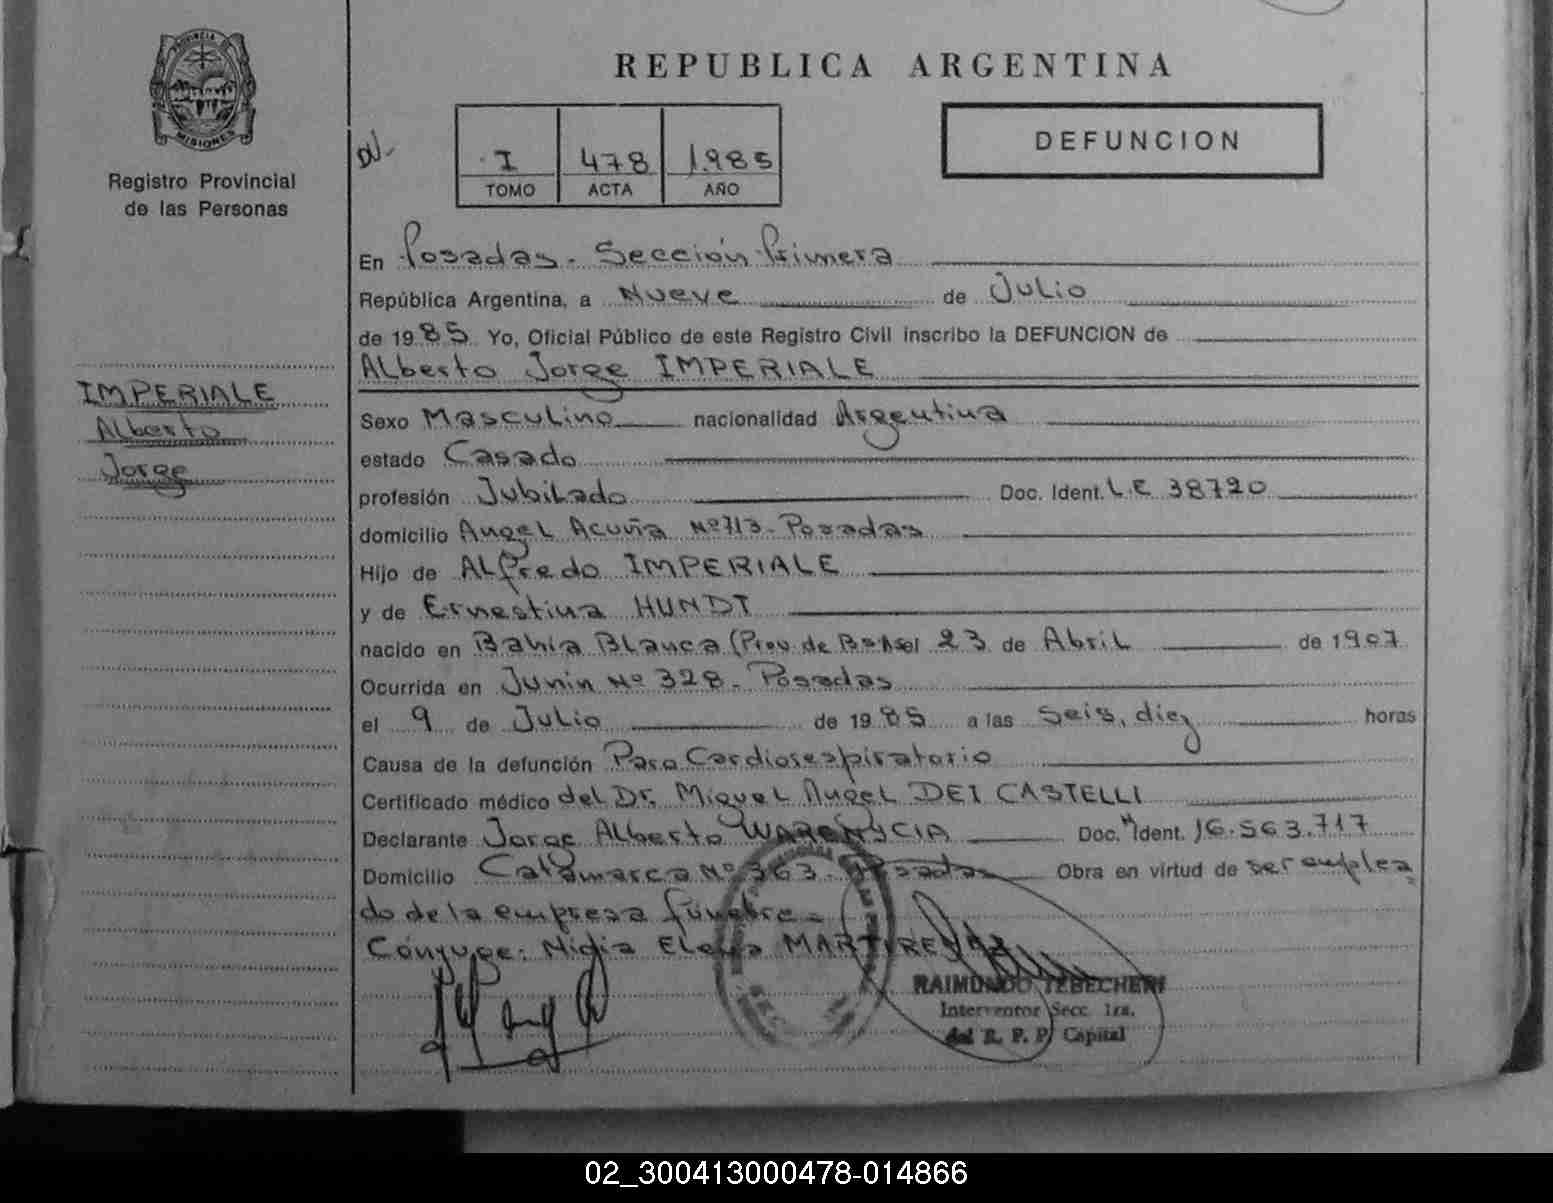 REPUBLICA ARGENTINA
PROVINCIA DE
MISIONES
Registro Provincial
de las Personas
I 478 1.985
TOMO ACTA AÑO
DEFUNCION
En Posadas - Sección Primera
República Argentina, a Nueve de Julio
de 19 85 Yo, Oficial Público de este Registro Civil inscribo la DEFUNCION de
Alberto Jorge IMPERIALE
IMPERIALE
Alberto
Jorge
Sexo Masculino nacionalidad Argentina
estado Casado
profesión Jubilado Doc. Ident. L.E 38720
domicilio Angel Acuña Nº 713 - Posadas
Hijo de Alfredo IMPERIALE
y de Ernestina HUNDT
nacido en Bahía Blanca (Prov. de Bs As) el 23 de Abril de 1907
Ocurrida en Junin Nº 328 - Posadas
el 9 de Julio de 19 85 a las seis, diez horas
Causa de la defunción Paro Cardiorespiratorio
Certificado médico del Dr. Miguel Angel DEI CASTELLI
Declarante Jorge Alberto WARENYCIA Doc. Ident. 16.563.717
Domicilio Catamarca Nº 363 - Posadas Obra en virtud de ser emplea
do de la empresa fúnebre -
Cónyuge: Nidia Elena
RAIMUNDO TEBECHERI
Interventor Secc. 1ra.
del R. P. P. Capital
02_300413000478-014866